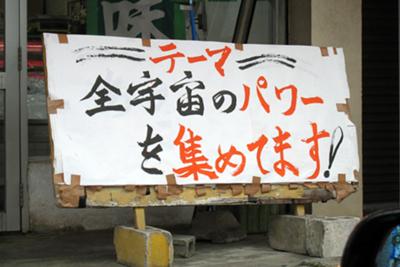 味
テーマ
全宇宙のパワー
を集めてます!